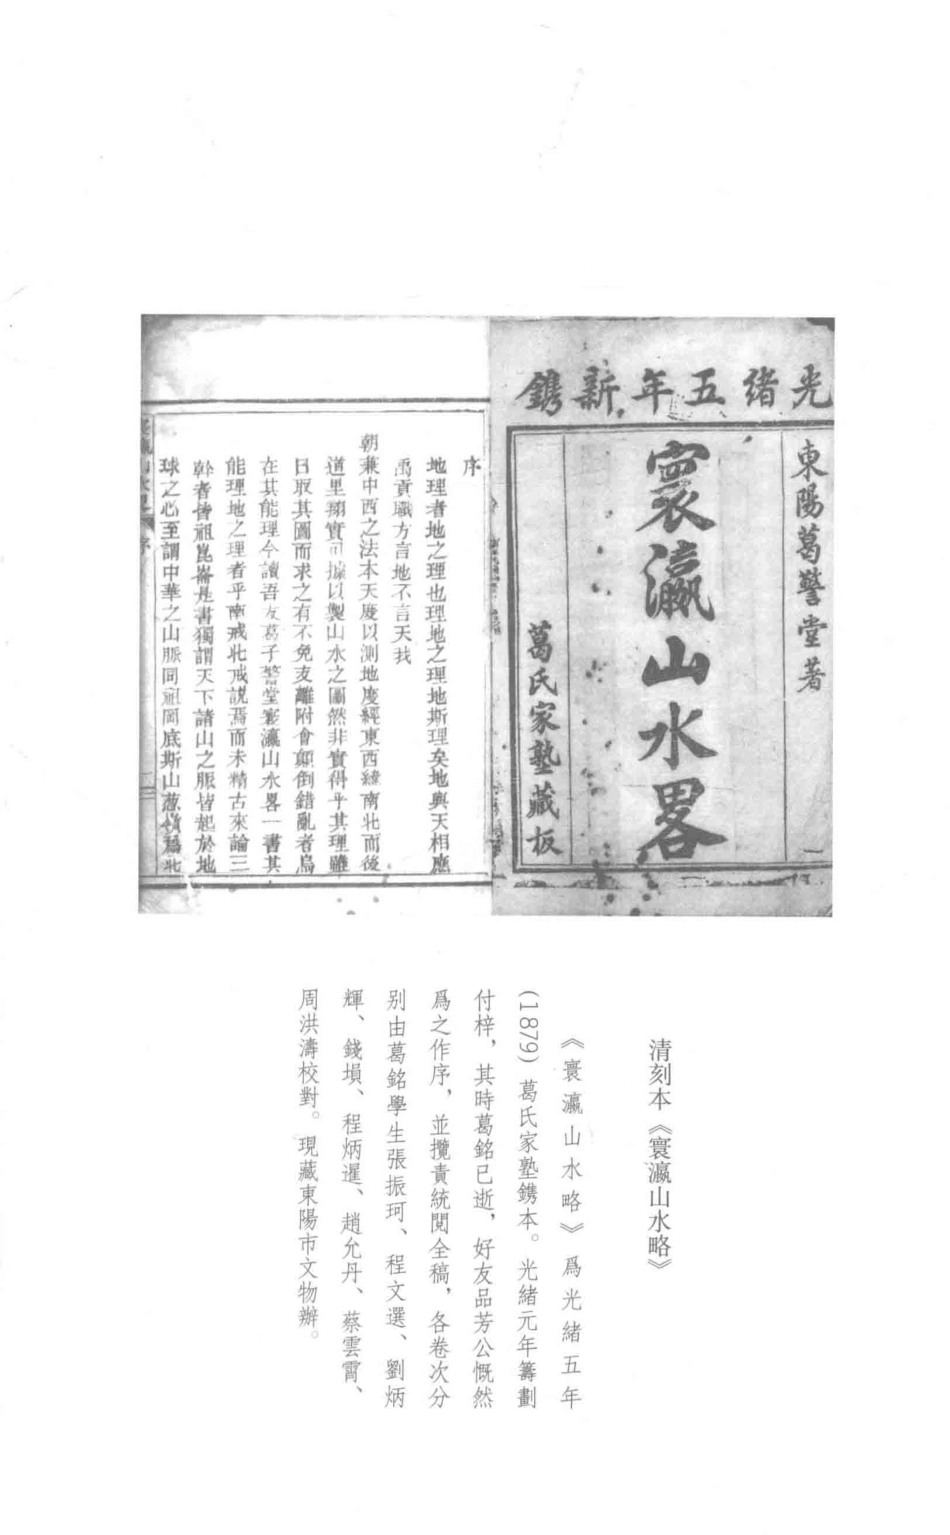 光緒五年新鐫
東陽葛警堂著
寰瀛山水畧
葛氏家塾藏板
序
地理者地之理也理地之理地斯理矣地與天相應
禹貢職方言地不言天我
朝兼中西之法本天度以測地度經東西緯南北而後
道里翔實可據以製山水之圖然非實得乎其理雖
日取其圖而求之有不免支離附會顛倒錯亂者烏
在其能理今讀吾友葛子警堂寰瀛山水畧一書其
能理地之理者乎南戒北戒説焉而未精古來論三
幹者皆祖崑崙是書獨謂天下諸山之脈皆起於地
球之心至謂中華之山脈同祖岡底斯山葱嶺爲北
清刻本《寰瀛山水略》
《寰瀛山水略》爲光緒五年
(1879) 葛氏家塾鐫本。光緒元年籌劃
付梓，其時葛銘已逝，好友品芳公慨然
爲之作序，並攬責統閱全稿，各卷次分
别由葛銘學生張振珂、程文選、劉炳
輝、錢塤、程炳暹、趙允丹、蔡雲霄、
周洪濤校對。現藏東陽市文物辦。